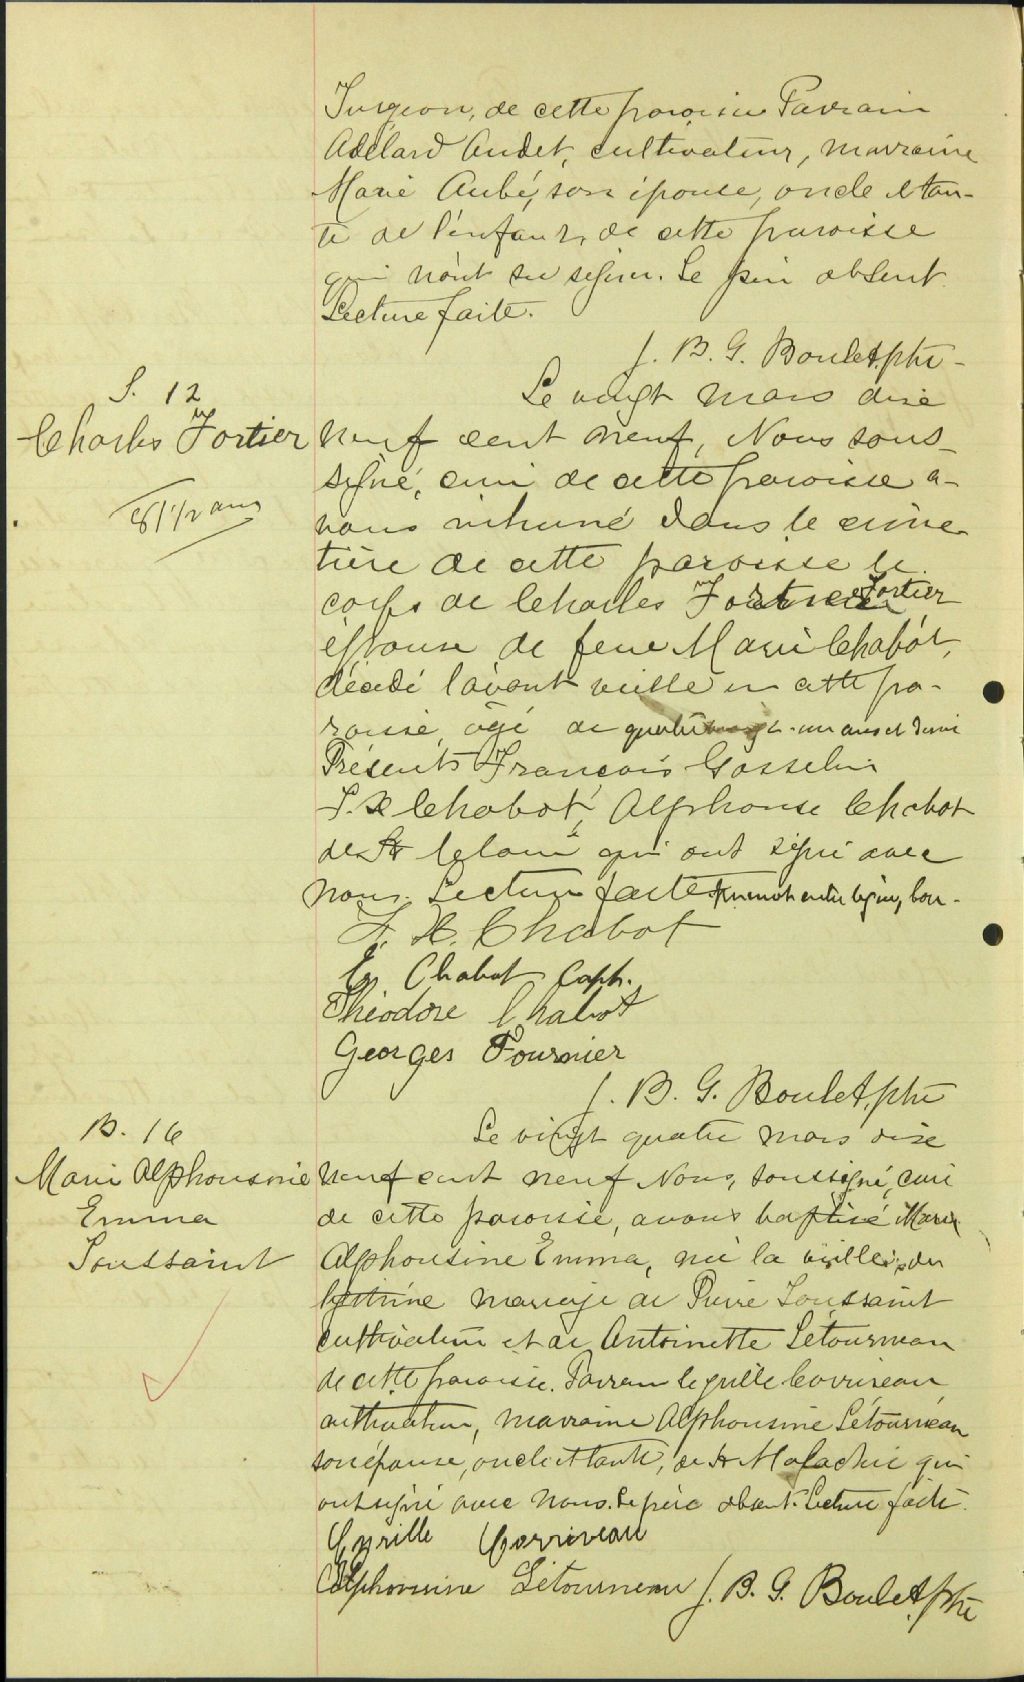 Turgeon, de cette paroisse Parrain
Adélard Audet, cultivateur, marraine
Marie Aubé, son épouse, oncle et tan-
te de l'enfant, de cette paroisse
qui n'ont su signer. Le père absent.
Lecture faite.
J. B. G. Boulet, ptre
S. 12
Charles Fortier
81 1/2 ans
Le vingt mars dixe
neuf cent neuf, Nous sous-
signé, curé de cette paroisse a-
vons inhumé dans le cime-
tière de cette paroisse le
corps de Charles Fortier
époux de feue Marie Chabot,
décédé l'avant veille en cette pa-
roisse, âgé de quatrevingt-un ans et demi
Présents François Gosselin
F. X Chabot, Alphonse Chabot
de St qui ont signé avec
nous. Lecture faite un mot entre ligne, bon.
F. X. Chabot
Chabot Capt.
Théodore Chabot
Georges Fournier
J. B. G. Boulet, ptre
B. 16
Marie Alphonsine
Emma
Toussaint
Le vingt quatre mars dixe
neuf cent neuf Nous, soussigné, curé
de cette paroisse, avons baptisé Marie
Alphonsine Emma, née la veille, du
légitime mariage de Pierre Toussaint
cultivateur et de Antoinette Létourneau
de cette paroisse. Parrain Cyrille Corriveau
cultivateur, marraine Alphonsine Létourneau
son épouse, oncle et tante, de St Malachie qui
ont signé avec nous. Le père absent. Lecture faite.
Cyrille Corriveau
Alphonsine Létourneau J. B. G. Boulet, ptre